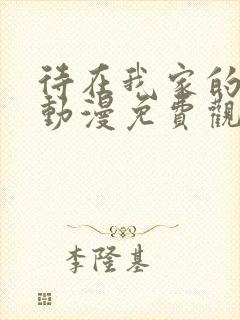 待在我家的
動漫免費觀
李隆基